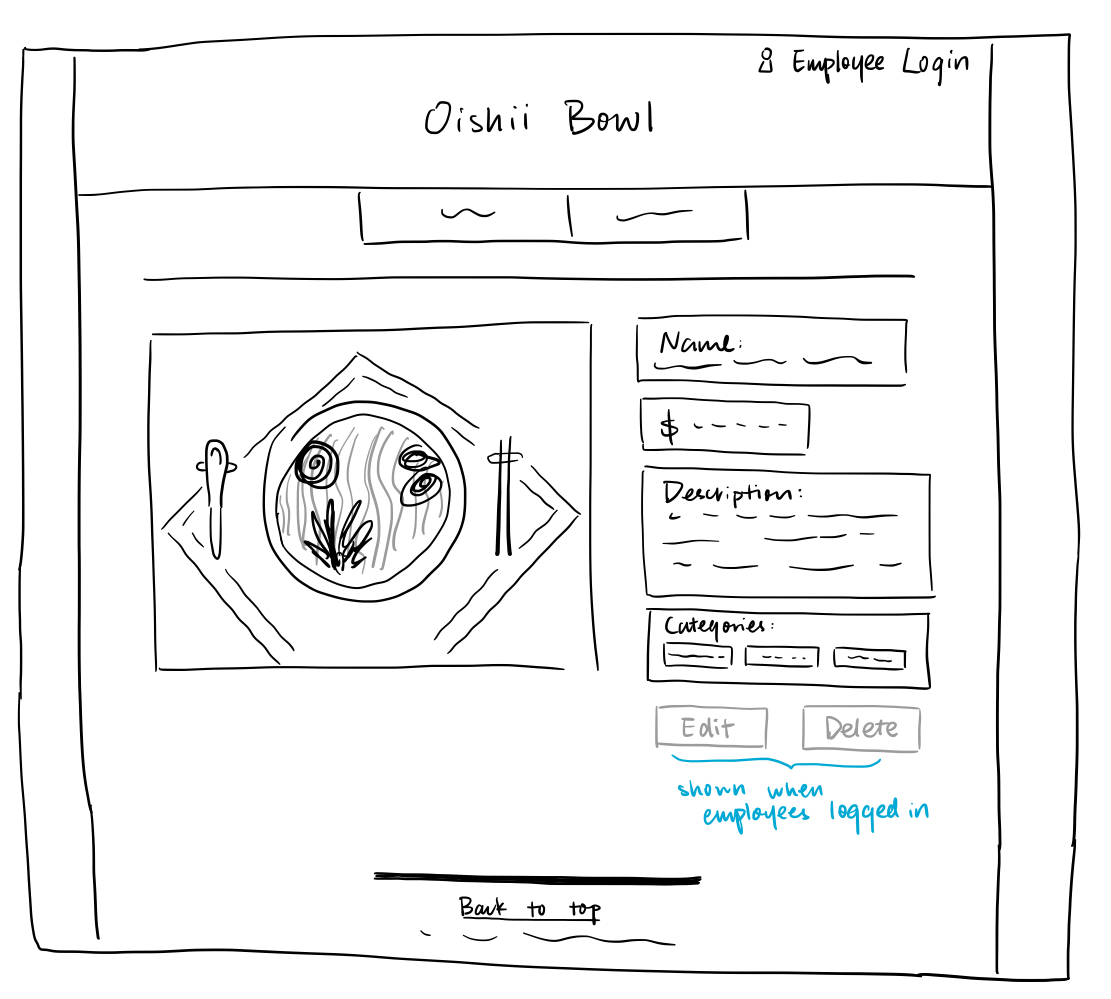 Employee Login
Oishii Bowl
Name:
$
Description:
Categories:
Edit
Delete
shown when
employees logged in
Back to top